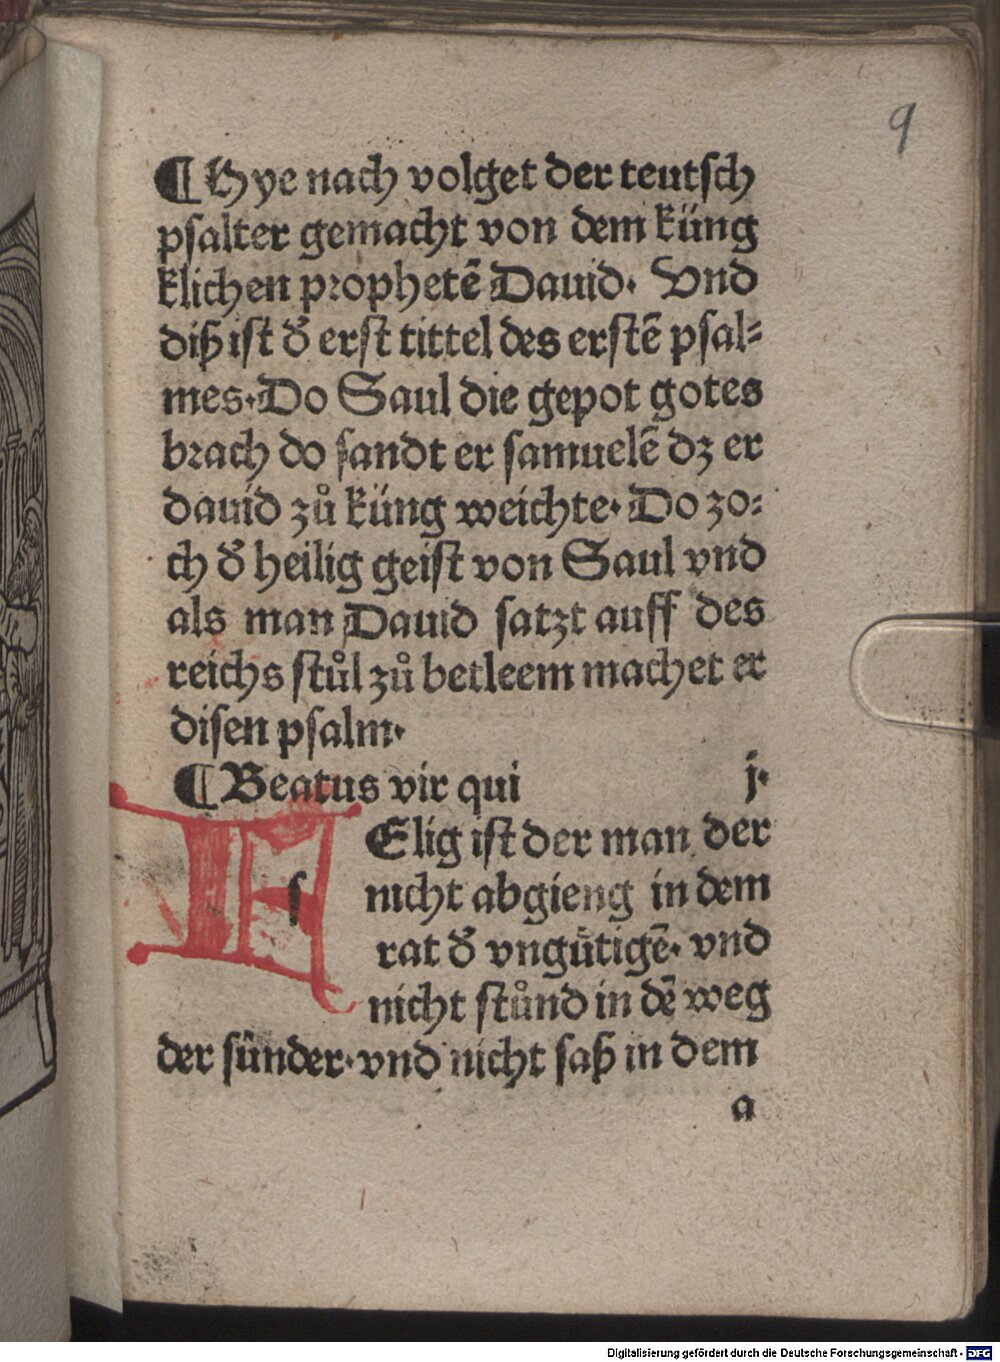 9
¶ Hye nach volget der teutsch
psalter gemacht von dem küng
klichen prophetē Dauid. Vnd
diß ist d̕ erst tittel des erstē psal⸗
mes. Do Saul die gepot gotes
brach do sandt er samuelē dz er
dauid zů küng weichte. Do zo⸗
ch d̕ heilig geist von Saul vnd
als man Dauid satzt auff des
reichs stůl zů betleem machet er
disen psalm.
¶ Beatus vir qui j.
Elig ist der man der
s nicht abgieng in dem
rat d̕ vngütigē. vnd
nicht stůnd in dē weg
der sünder. vnd nicht saß in dem
a
Digitalisierung gefördert durch die Deutsche Forschungsgemeinschaft - DFG